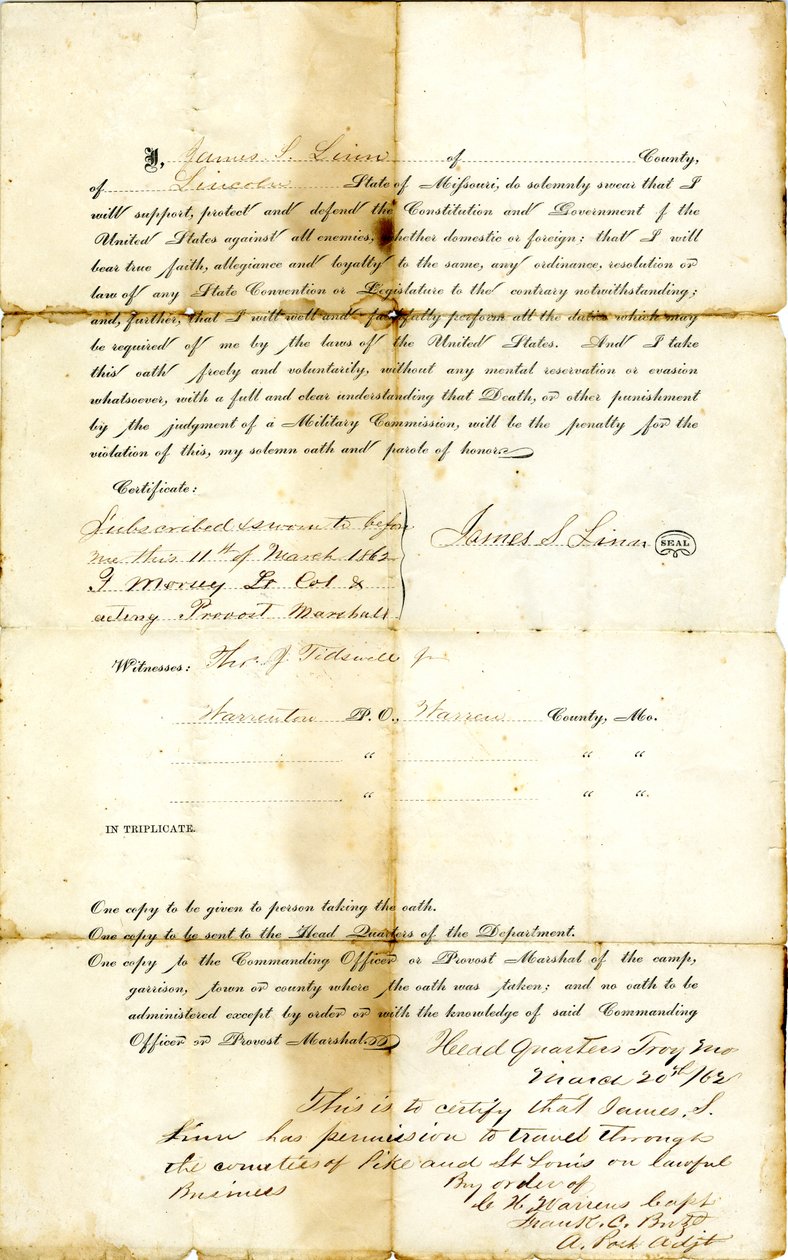 I, James S. Linn of County,
of Lincoln State of Missouri, do solemnly swear that I
will support, protect and defend the Constitution and Government f the
United States against all enemies, whether domestic or foreign; that I will
bear true faith, allegiance and loyalty to the same, any ordinance, resolution or
law of any State Convention or Legislature to the contrary notwithstanding;
and, further, that I will well and faithfully perform all the duties which may
be required of me by the laws of the United States. And I take
this oath freely and voluntarily, without any mental reservation or evasion
whatsoever, with a full and clear understanding that Death, or other punishment
by the judgment of a Military Commission, will be the penalty for the
violation of this, my solemn oath and parole of honor.
Certificate:
Subscribed & sworn to before
me this 11th of March 1862
F Morsey Lt Col &
acting Provost Marshall
James S Linn SEAL
Witnesses: Thos. J. Tidswell Jr
Warrenton P. O., Warren County, Mo.
" " "
" " ".
IN TRIPLICATE.
One copy to be given to person taking the oath.
One copy to be sent to the Head Quarters of the Department.
One copy to the Commanding Officer or Provost Marshal of the camp,
garrison, town or county where the oath was taken; and no oath to be
administered except by order or with the knowledge of said Commanding
Officer or Provost Marshal.
Head Quarters Troy Mo
March 20th /62
This is to certify that James. S.
Linn has permission to travel through
the counties of Pike and St Louis on lawful
Business By order of
C H Warrens Capt
Frank. C.
A. Post Adjt